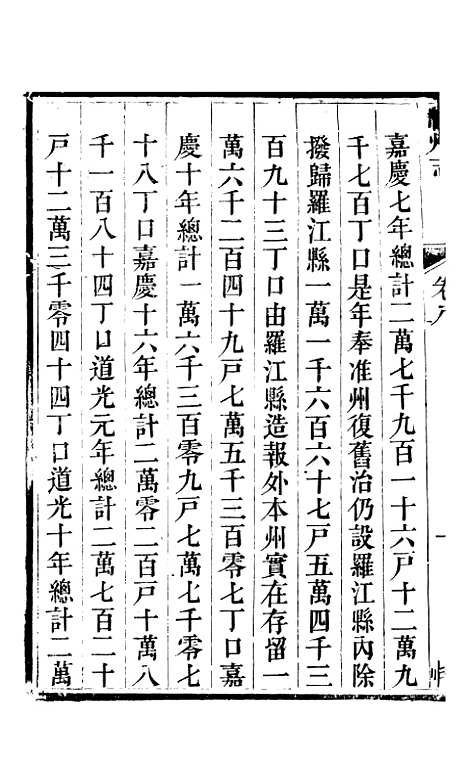 嘉慶七年總計二萬七千九百一十六戸十二萬九
千七百丁口是年奉准州復舊治仍設羅江縣內除
撥歸羅江縣一萬一千六百六十七戸五萬四千三
百九十三丁口由羅江縣造報外本州實在存留一
萬六千二百四十九戸七萬五千三百零七丁口嘉
慶十年總計一萬六千三百零九戸七萬七千零七
十八丁口嘉慶十六年總計二萬零二百戸十萬八
千一百八十四丁口道光元年總計二萬七百二十
戸十二萬三千零四十四丁口道光十年總計二萬
州志
卷